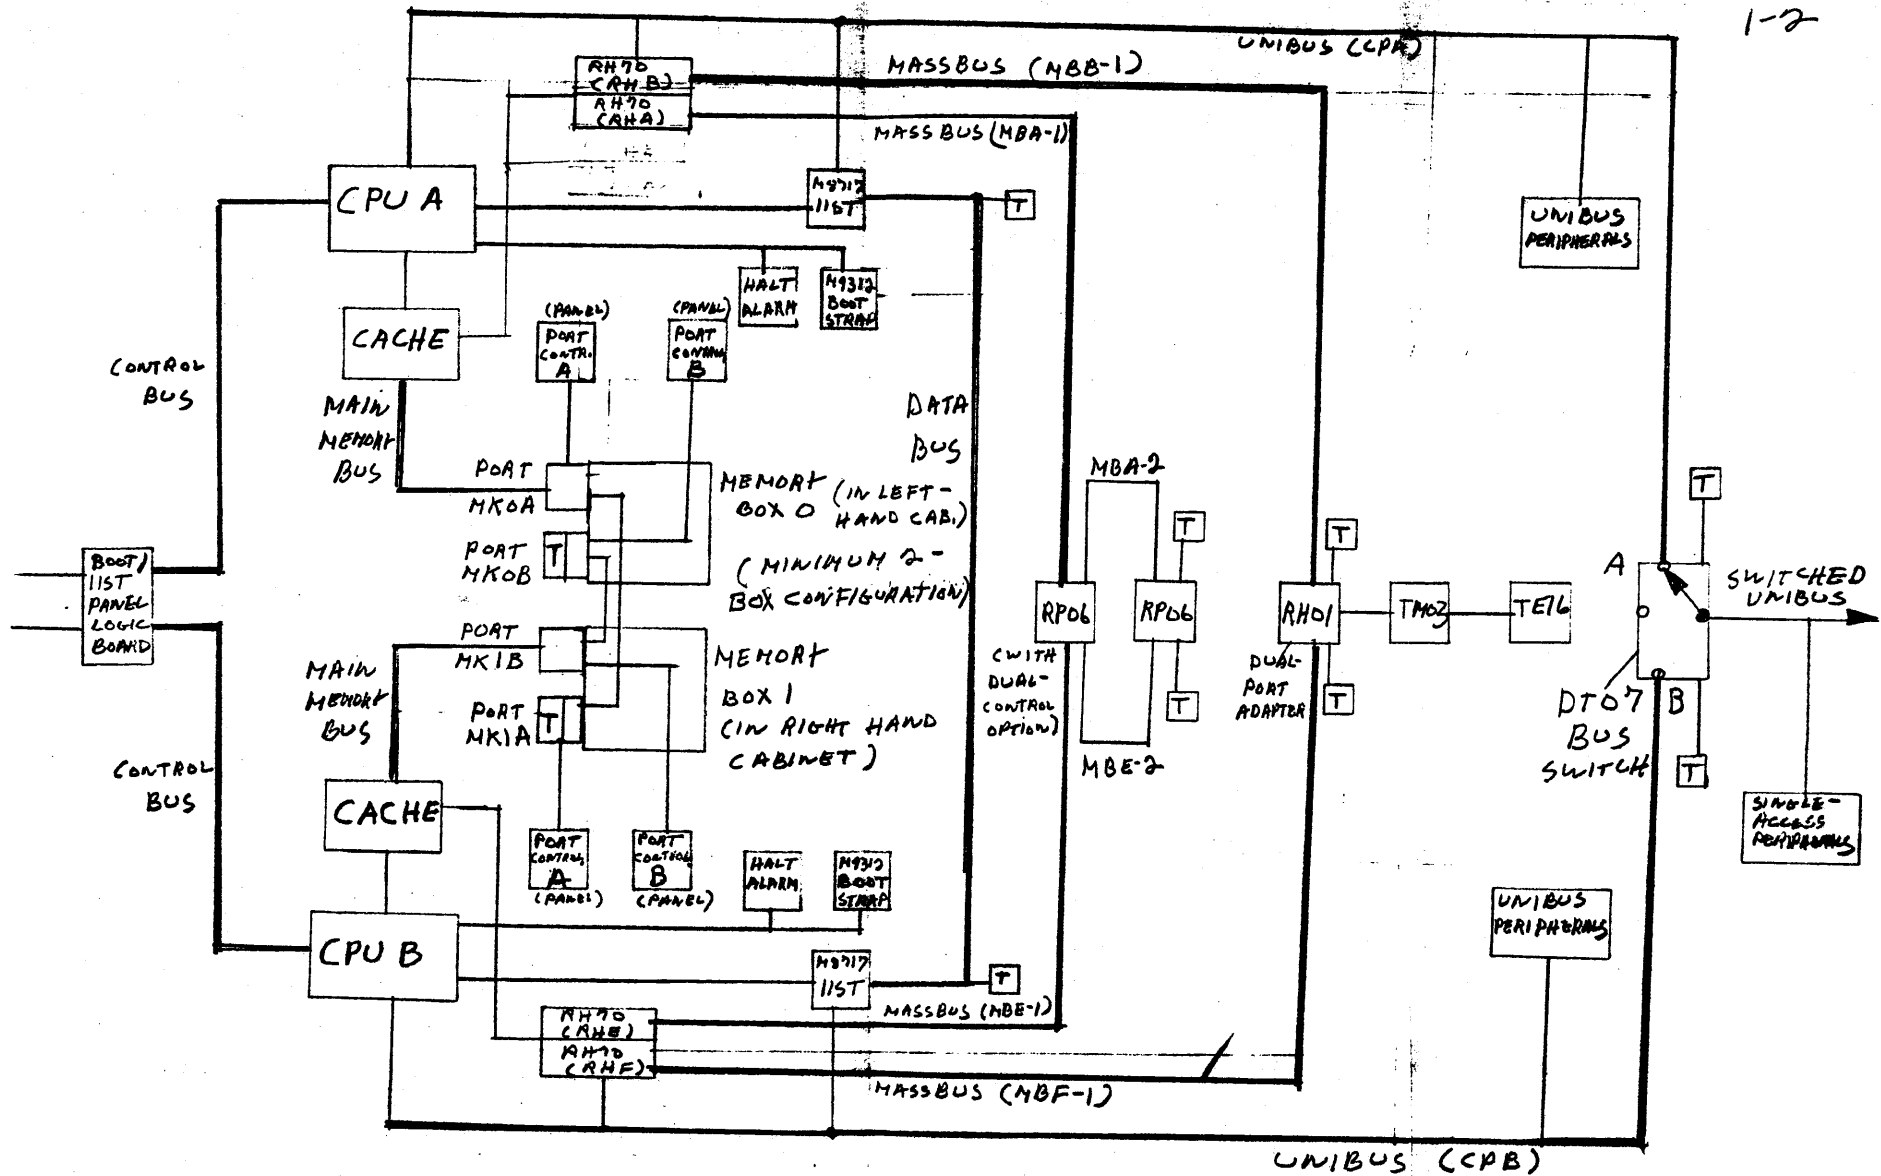 1-2
UNIBUS (CPA)
MASSBUS (MBB-1)
RH70
(RHB)
RH70
(RHA)
MASSBUS (MBA-1)
CPU A
M8717
IIST
T
UNIBUS
PERIPHERALS
HALT
ALARM
M9312
BOOT
STRAP
CACHE
(PANEL)
PORT
CONTROL
A
(PANEL)
PORT
CONTROL
B
CONTROL
BUS
MAIN
MEMORY
BUS
DATA
BUS
PORT
MK0A
MEMORY
BOX 0 (IN LEFT-
HAND CAB.)
MBA-2
T
PORT
MK0B
T
(MINIMUM 2-
BOX CONFIGURATION)
T
T
BOOT/
IIST
PANEL
LOGIC
BOARD
RP06
RP06
RH01
TM03
TE16
A
SWITCHED
UNIBUS
PORT
MK1B
MEMORY
BOX 1
(IN RIGHT HAND
CABINET)
PORT
MK1A
T
MAIN
MEMORY
BUS
(WITH
DUAL-
CONTROL
OPTION)
T
DUAL-
PORT
ADAPTER
T
DT07
BUS
SWITCH
B
T
MBE-2
CONTROL
BUS
CACHE
PORT
CONTROL
A
(PANEL)
PORT
CONTROL
B
(PANEL)
HALT
ALARM
M9312
BOOT
STRAP
SINGLE-
ACCESS
PERIPHERALS
UNIBUS
PERIPHERALS
CPU B
M8717
IIST
T
MASSBUS (MBE-1)
RH70
(RHE)
RH70
(RHF)
MASSBUS (MBF-1)
UNIBUS (CPB)